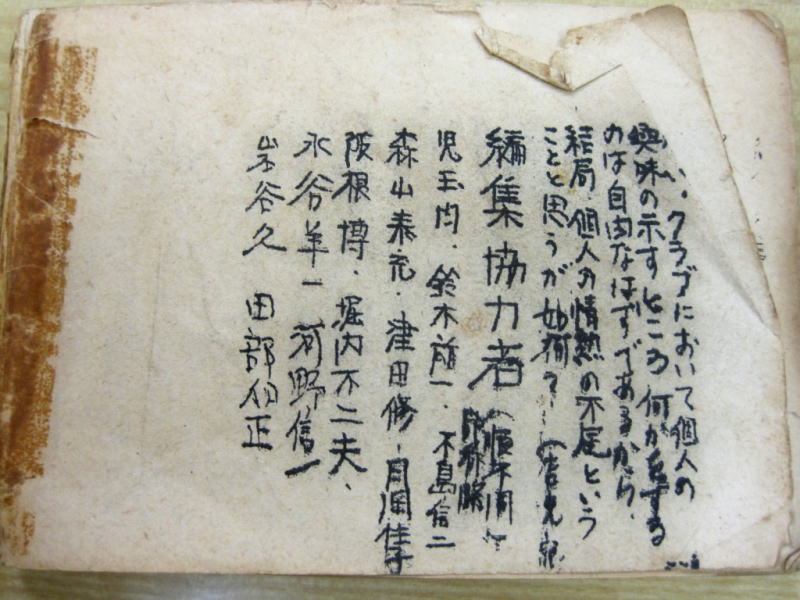 い、クラブにおいて個人の
興味の示すところ何か為する
のは自由なはずであるから、
結局、個人の情熱の不足という
ことと思うが如何？
編集協力者（順不同
敬称略
児玉 鈴木 島信二
森山泰 津田修・
阪根博・堀内不二夫、
水谷羊一 河野信一
岩谷久 田部 正